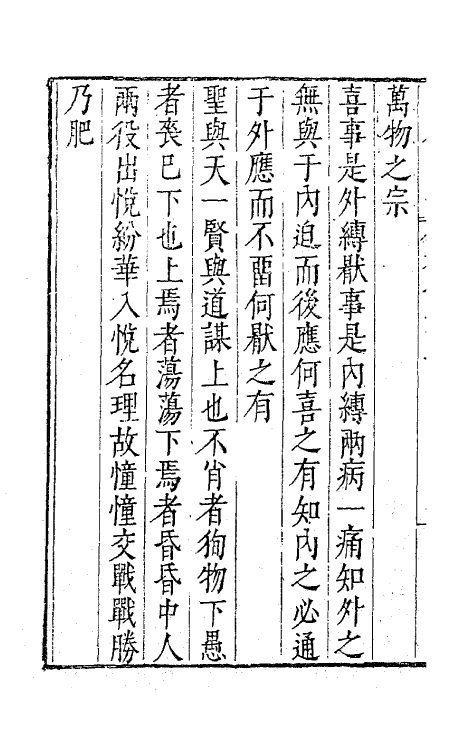 萬物之宗
喜事是外縛猒事是內縛兩病一痛知外之
無與于內迫而後應何喜之有知內之必通
于外應而不畱何猒之有
聖與天一賢與道謀上也不肖者徇物下愚
者喪已下也上焉者蕩蕩下焉者昏昏中人
兩役出悅紛華入悅名理故憧憧交戰戰勝
乃肥